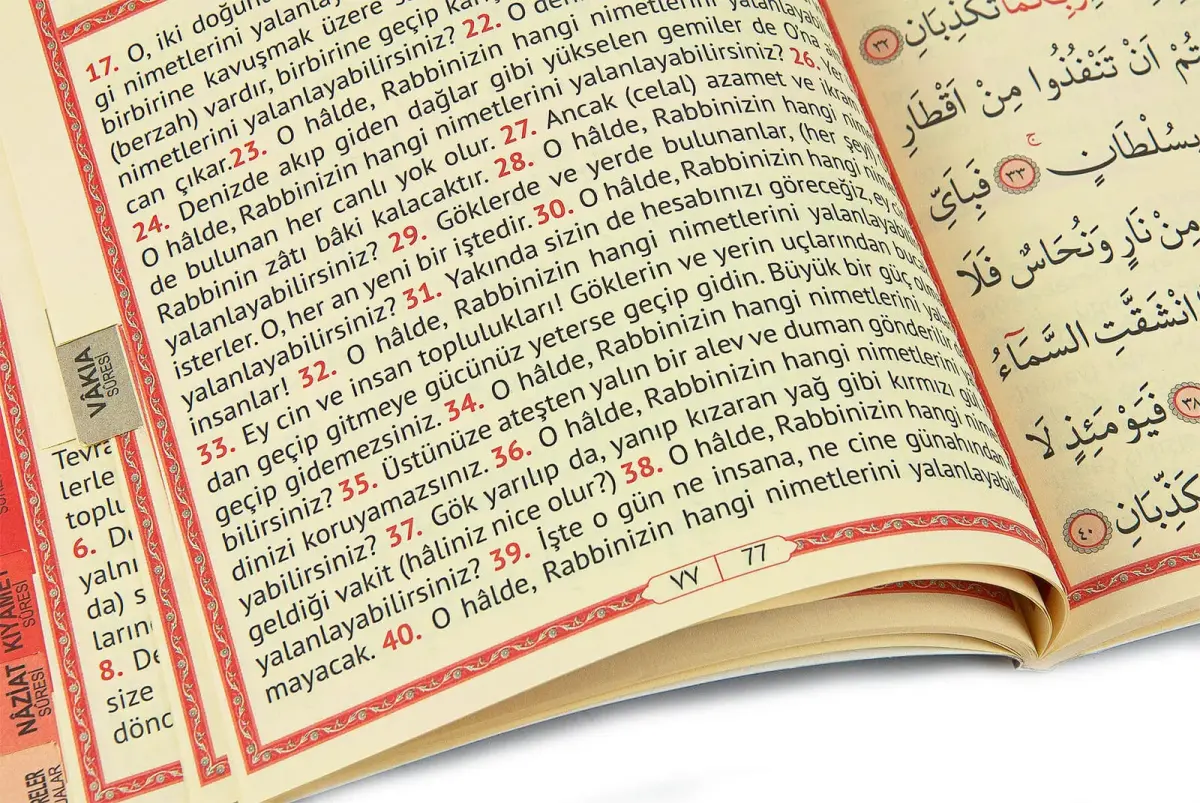 17. O, iki doğunun
gi nimetlerini yalanlayabilirsiniz?
birbirine kavuşmak üzere
(berzah) vardır, birbirine geçip
nimetlerini yalanlayabilirsiniz? 22. O
can çıkar.23. O hâlde, Rabbinizin hangi nimetlerini yalanlayabilirsiniz?
24. Denizde akıp giden dağlar gibi yükselen gemiler de O'na
O hâlde, Rabbinizin hangi nimetlerini yalanlayabilirsiniz? 26. Yer
de bulunan her canlı yok olur. 27. Ancak (celal) azamet ve ikram
Rabbinin zâtı bâki kalacaktır. 28. O hâlde, Rabbinizin hangi
yalanlayabilirsiniz? 29. Göklerde ve yerde bulunanlar, (her şeyi)
isterler. O, her an yeni bir iştedir.30. O hâlde, Rabbinizin hangi
yalanlayabilirsiniz? 31. Yakında sizin de hesabınızı göreceğiz, ey
insanlar! 32. O hâlde, Rabbinizin hangi nimetlerini
33. Ey cin ve insan toplulukları! Göklerin ve yerin uçlarından
dan geçip gitmeye gücünüz yeterse geçip gidin. Büyük bir güç
geçip gidemezsiniz. 34. O hâlde, Rabbinizin hangi nimetlerini
bilirsiniz? 35. Üstünüze ateşten yalın bir alev ve duman gönderilir
dinizi koruyamazsınız. 36. O hâlde, Rabbinizin hangi nimetlerini
yabilirsiniz? 37. Gök yarılıp da, yanıp kızaran yağ gibi kırmızı gül
geldiği vakit (hâliniz nice olur?) 38. O hâlde, Rabbinizin hangi
yalanlayabilirsiniz? 39. İşte o gün ne insana, ne cine günahından
mayacak. 40. O hâlde, Rabbinizin hangi nimetlerini
٧٧ 77
تُكَذِّبَانِ ٣٢
اَنْ تَنْفُذُوا مِنْ اَقْطَارِ
بِسُلْطَانٍ ٣٣ فَبِاَيِّ
مِنْ نَارٍ وَنُحَاسٌ فَلَا
انْشَقَّتِ السَّمَٓاءُ
٣٨ فَيَوْمَئِذٍ لَا
تُكَذِّبَانِ ٤٠
VÂKIA
SÛRESİ
lerle
toplu
6.
yalnı
da) s
ların
8. De
size
dönc
KIYAMET
SÛRESİ
NÂZİAT
SÛRESİ